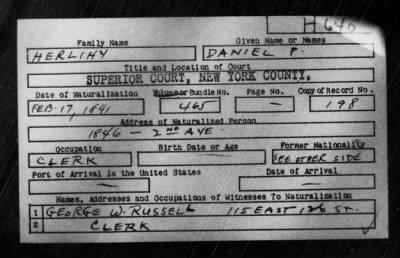 H 640
Family Name Given Name or Names
HERLIHY DANIEL P.
Title and Location of Court
SUPERIOR COURT, NEW YORK COUNTY.
Date of Naturalization Volume or Bundle No. Page No. Copy of Record No.
FEB. 17, 1891 465 — 198
Address of Naturalized Person
1846 — 2ND AVE.
Occupation Birth Date or Age Former Nationality
CLERK — SEE OTHER SIDE
Port of Arrival in the United States Date of Arrival
— —
Names, Addresses and Occupations of Witnesses To Naturalization
1 GEORGE W. RUSSELL 115 EAST 126 ST.
2 CLERK